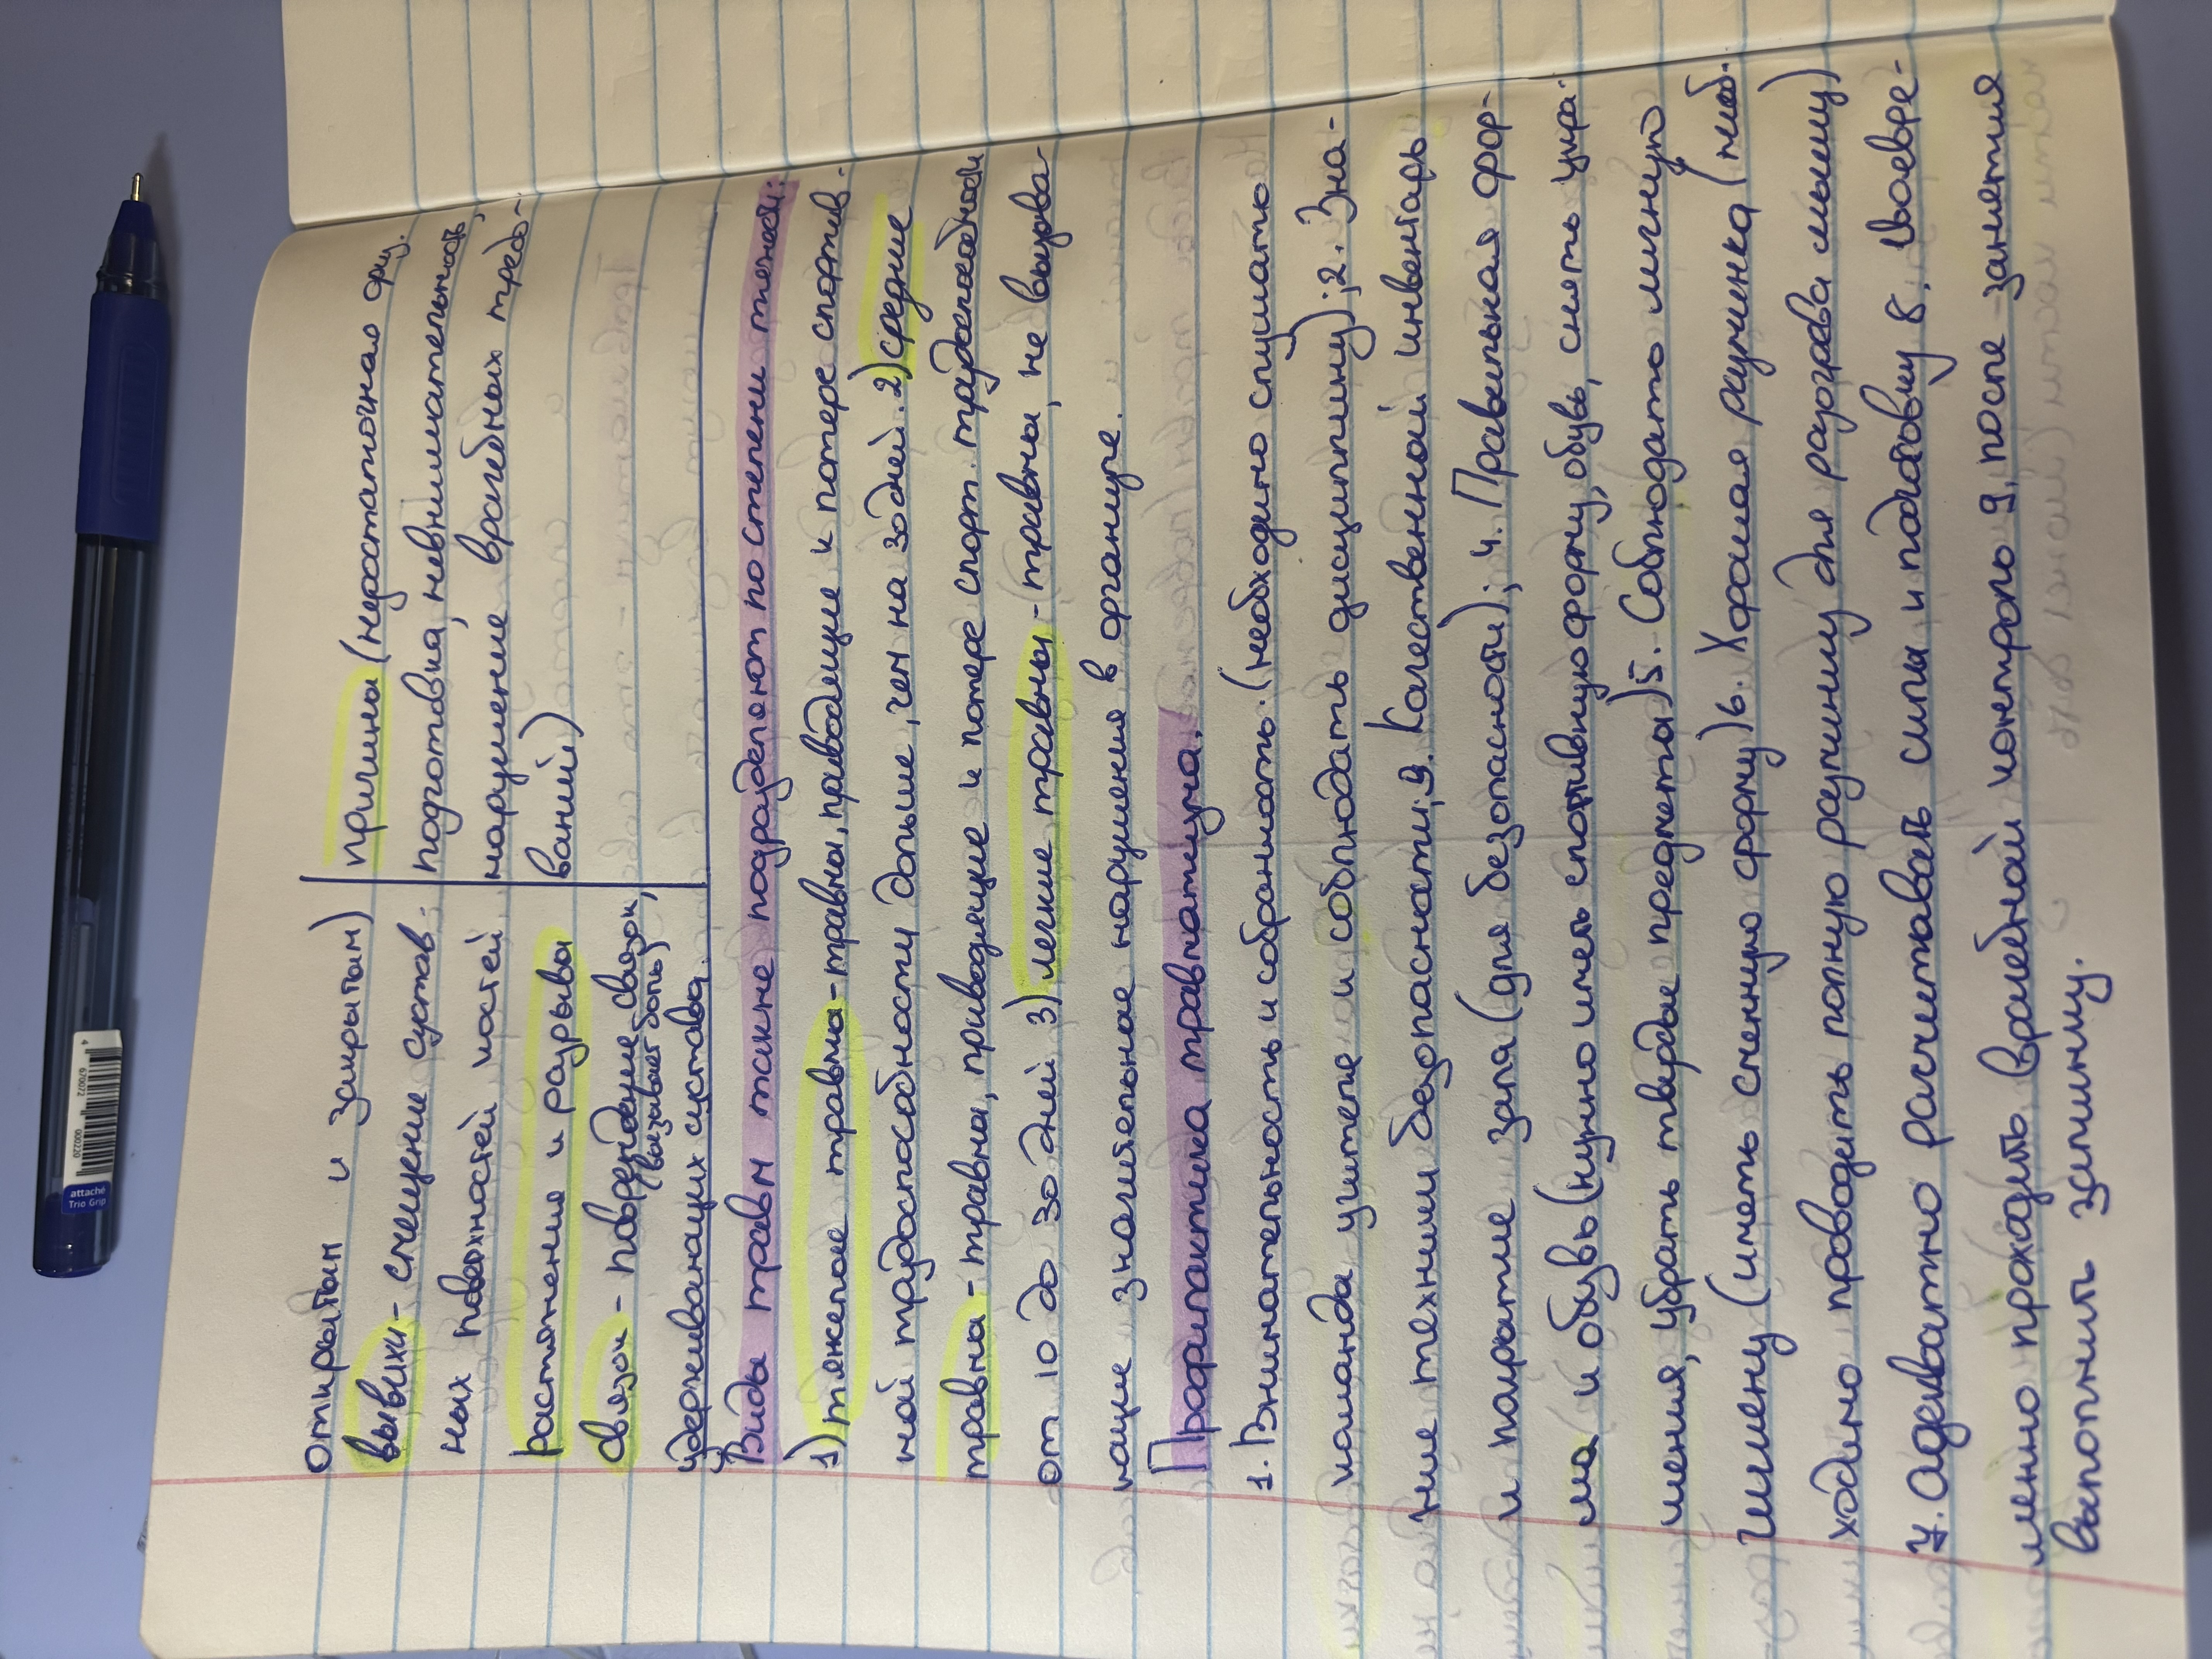 открытым и закрытым)
вывихи - смещение сустав-
ных поверхностей костей
растяжения и разрывы
связок - повреждение связок,
(вызывает боль)
удерживающих сустава.
причины (недостаточная физ.
подготовка, невнимательность,
нарушение врачебных требо-
ваний)
Виды травм также подразделяют по степени тяжести:
1) тяжелые травмы - травмы, приводящие к потере спортив-
ной трудоспособности дольше, чем на 30 дней. 2) средние
травмы - травмы, приводящие к потере спорт. трудоспособности
от 10 до 30 дней 3) легкие травмы - травмы, не вызыва-
ющие значительное нарушения в организме.
Профилактика травматизма.
1. Внимательность и собранность. (необходимо слушать
команда учителя и соблюдать дисциплину); 2. Зна-
ние техники безопасности; 3. Качественный инвентарь
и покрытие зала (для безопасности); 4. Правильная фор-
ма и обувь (нужно иметь спортивную форму, обувь, снять укра-
шения, убрать твердые предметы) 5. Соблюдать личную
гигиену (иметь сменную форму) 6. Хорошая разминка (необ-
ходимо проводить полную разминку для разогрева мышц)
7. Адекватно рассчитывать силы и подготовку 8. Своевре-
менно проходить врачебный контроль 9. после занятия
выполнить заминку.
attaché
Trio Grip
4 670072 000220